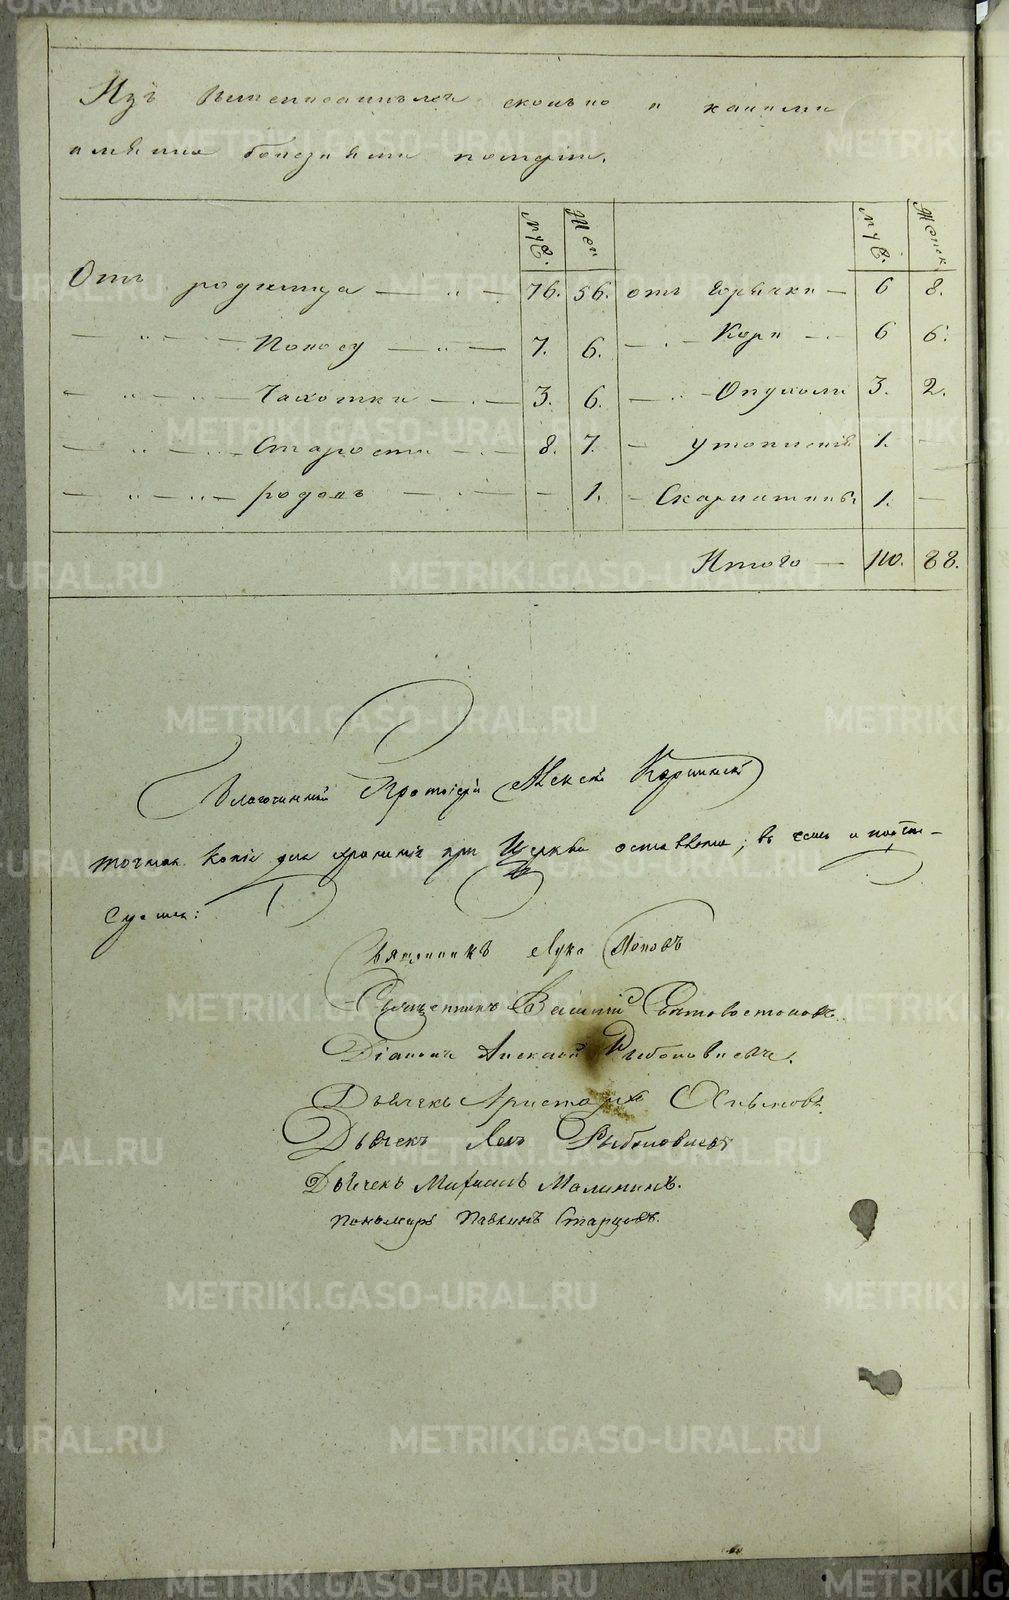 Изъ вышеписанныхъ сколько и какими
именно болезнями померли.
Муж. Жен Муж. Женск
Отъ родимца — " — 76. 56. отъ Горячки — 6 8.
— " — Поносу — " — 7. 6. — " — Кори — 6 6.
— " — " — Чахотки — " — 3. 6. — " — Опухоли 3. 2.
— " — " — Старости — " — 8. 7. — утопшихъ 1. —
— " — " — родовъ — " — — 1. — Скарлатины 1. —
Итого — 110. 88.
Благочинный Протоіерей Алексѣй Карпинскій
точная копія для храненія при Церкви оставлена; въ чемъ и подпи-
суемся:
Священникъ Лука Поповъ
Священникъ Василій
Діаконъ Алексѣй Рыболовлевъ.
Дьячекъ Аристархъ
Дьячекъ Левъ Рыболовлевъ
Дьячекъ Михаилъ Малининъ.
Пономарь Павлинъ Старцовъ.
METRIKI.GASO-URAL.RU